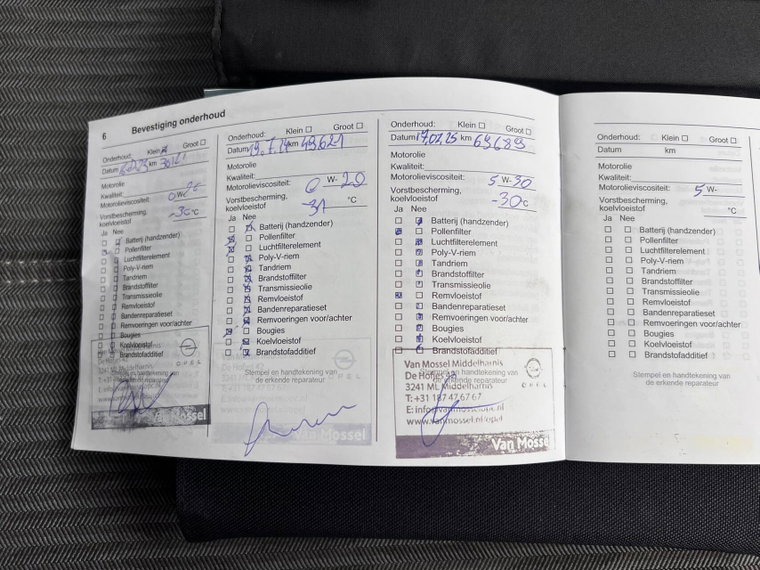 6
Bevestiging onderhoud
Onderhoud: Klein Groot
Datum km
Motorolie
Kwaliteit:
Motorolieviscositeit: W-
Vorstbescherming,
koelvloeistof °C
Ja Nee
Batterij (handzender)
Pollenfilter
Luchtfilterelement
Poly-V-riem
Tandriem
Brandstoffilter
Transmissieolie
Remvloeistof
Bandenreparatieset
Remvoeringen voor/achter
Bougies
Koelvloeistof
Brandstofadditief
OPEL
Van Mossel
Onderhoud: Klein Groot
Datum 19.7.24 km 49621
Motorolie
Kwaliteit:
Motorolieviscositeit: 0 W- 20
Vorstbescherming,
koelvloeistof -31 °C
Ja Nee
Batterij (handzender)
Pollenfilter
Luchtfilterelement
Poly-V-riem
Tandriem
Brandstoffilter
Transmissieolie
Remvloeistof
Bandenreparatieset
Remvoeringen voor/achter
Bougies
Koelvloeistof
Brandstofadditief
Stempel en handtekening van
de erkende reparateur
OPEL
Van Mossel
Onderhoud: Klein Groot
Datum 17.02.25 km 69689
Motorolie
Kwaliteit:
Motorolieviscositeit: 5 W-30
Vorstbescherming,
koelvloeistof -30 °C
Ja Nee
Batterij (handzender)
Pollenfilter
Luchtfilterelement
Poly-V-riem
Tandriem
Brandstoffilter
Transmissieolie
Remvloeistof
Bandenreparatieset
Remvoeringen voor/achter
Bougies
Koelvloeistof
Brandstofadditief
Van Mossel Middelharnis
Stempel en handtekening van
de erkende reparateur
3241 ML Middelharnis
T: +31 187 47 67 67
OPEL
Van Mossel
Onderhoud: Klein Groot
Datum km
Motorolie
Kwaliteit:
Motorolieviscositeit: 5 W-
Vorstbescherming,
koelvloeistof °C
Ja Nee
Batterij (handzender)
Pollenfilter
Luchtfilterelement
Poly-V-riem
Tandriem
Brandstoffilter
Transmissieolie
Remvloeistof
Bandenreparatieset
Remvoeringen voor/achter
Bougies
Koelvloeistof
Brandstofadditief
Stempel en handtekening van
de erkende reparateur